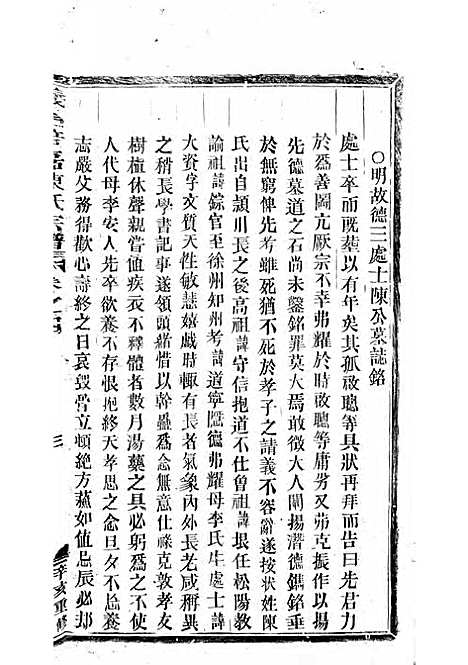 〇明故德三處士陳公墓誌銘
處士卒而既葬以有年矣其孤啟聰等具狀再拜而告曰先君力
於爲善圖亢厥宗不幸弗耀於時啟聰等庸劣又弗克振作以揚
先德墓道之石尚未鑿銘罪莫大焉敢徵大人闡揚潛德鐫銘垂
於無窮俾先考雖死猶不死於孝子之請義不容辭遂按狀姓陳
氏出自潁川長之後高祖諱守信抱道不仕曾祖諱垠任松陽教
諭祖諱綜官至徐州知州考諱道寧隱德弗耀母李氏生處士諱
大資字文質天性敏慧嬉戲時輒有長者氣象內外長老咸稱異
之稍長學書記事遂領頭緒惜以幹蠱爲念無意仕祿克敦孝友
樹植休聲親嘗値疾衣不釋體者數月湯藥之具必躬爲之不使
人代母李安人先卒欲養不存恨抱終天孝思之念旦夕不忘養
志嚴父務得歡心壽終之日哀毀骨立頓絕方蘇如值忌辰必却
陳氏宗譜
三
辛亥重修